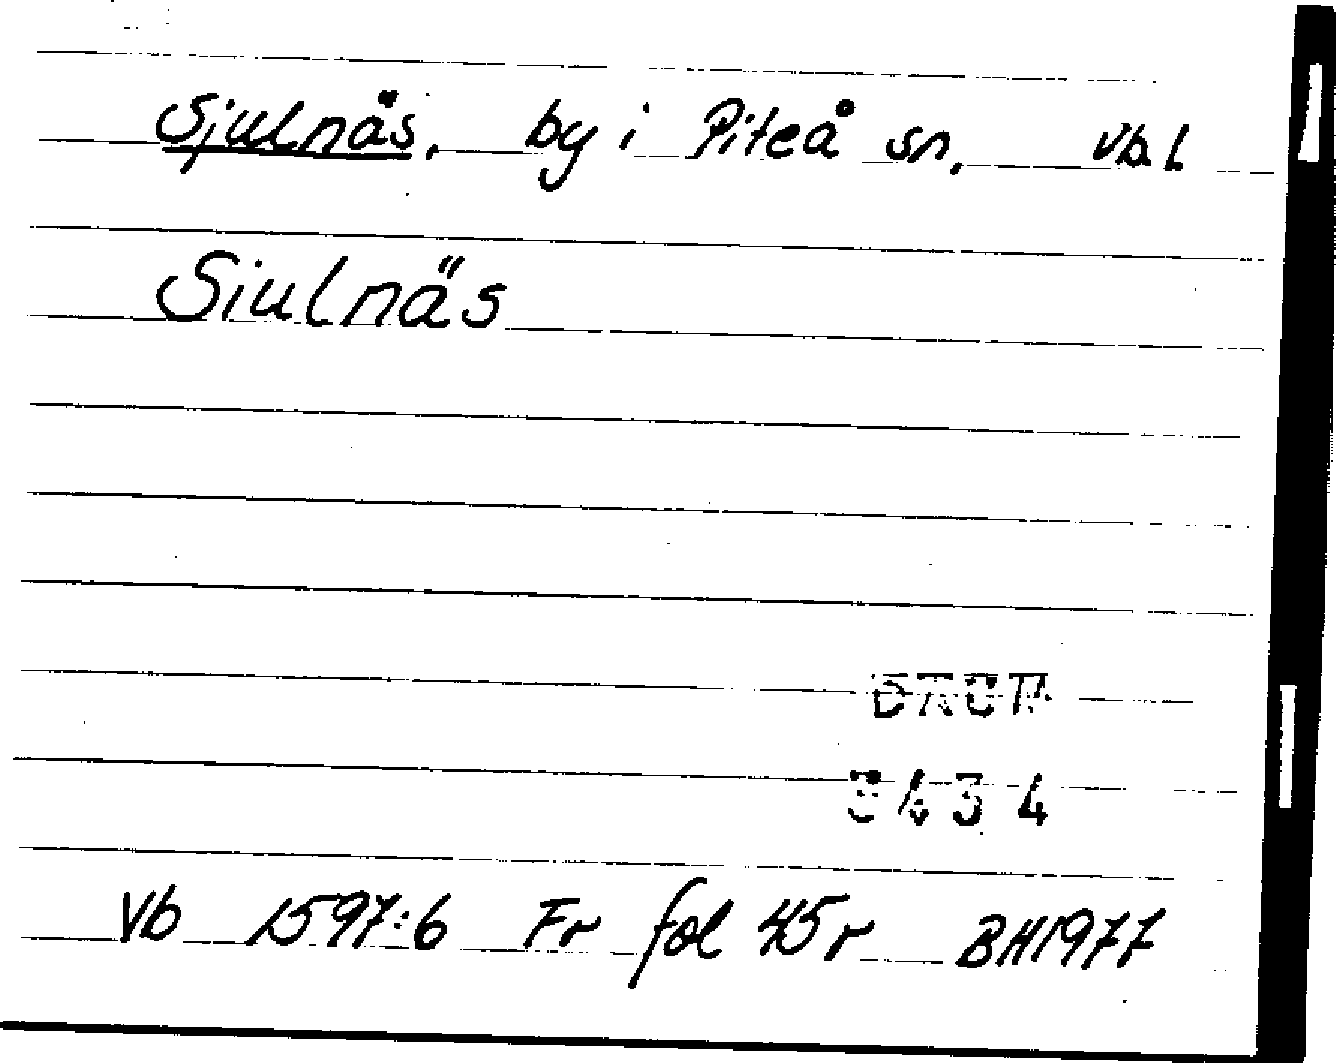 Sjulnäs. by i Piteå sn. Vb.l.
Siulnäs
3434
Vb 1597:6 Fr fol 45r BH1977